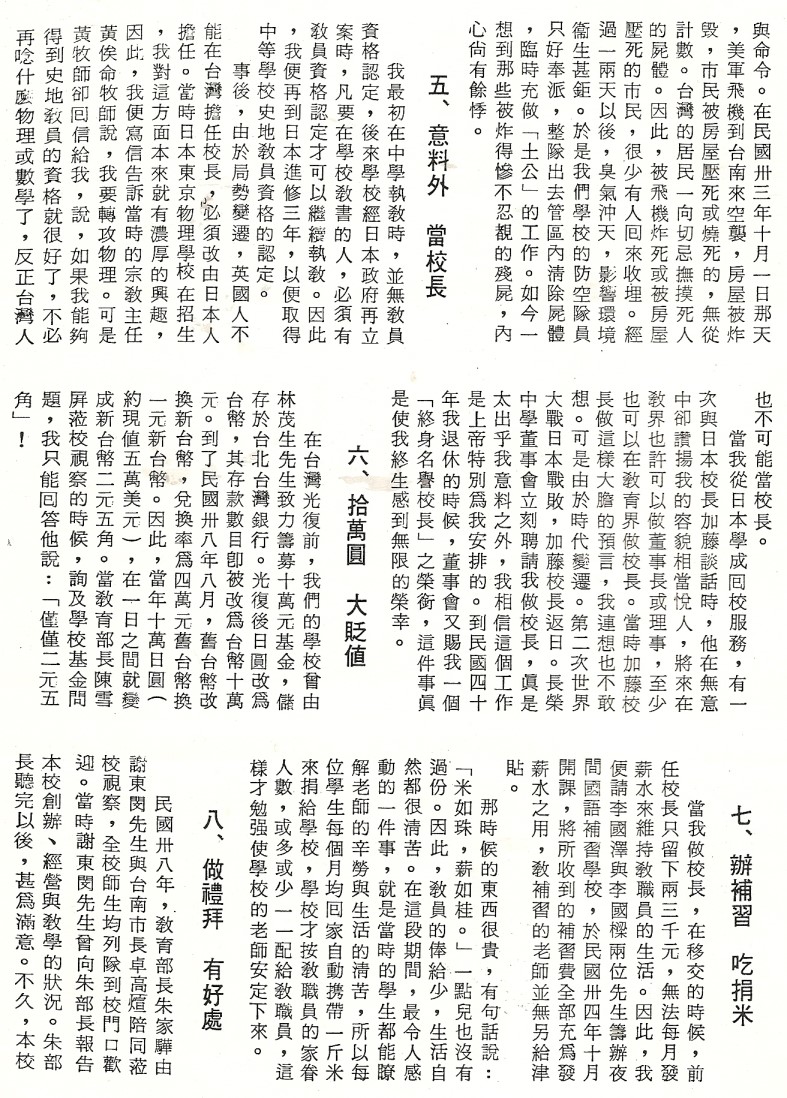 與命令。在民國卅三年十月一日那天
，美軍飛機到台南來空襲，房屋被炸
毀，市民被房屋壓死或燒死的，無從
計數。台灣的居民一向切忌撫摸死人
的屍體。因此，被飛機炸死或被房屋
壓死的市民，很少有人回來收埋。經
過一兩天以後，臭氣沖天，影響環境
衞生甚鉅。於是我們學校的防空隊員
只好奉派，整隊出去管區內清除屍體
，臨時充做「土公」的工作。如今一
想到那些被炸得慘不忍覩的殘屍，內
心尚有餘悸。
五、意料外　當校長
我最初在中學執敎時，並無敎員
資格認定，後來學校經日本政府再立
案時，凡要在學校敎書的人，必須有
敎員資格認定才可以繼續執敎。因此
，我便再到日本進修三年，以便取得
中等學校史地敎員資格的認定。
事後，由於局勢變遷，英國人不
能在台灣擔任校長，必須改由日本人
擔任。當時日本東京物理學校在招生
，我對這方面本來就有濃厚的興趣，
因此，我便寫信告訴當時的宗敎主任
黃俟命牧師說，我要轉攻物理。可是
黃牧師卻回信給我，說，如果我能夠
得到史地敎員的資格就很好了，不必
再唸什麼物理或數學了，反正台灣人
也不可能當校長。
當我從日本學成回校服務，有一
次與日本校長加藤談話時，他在無意
中卻讚揚我的容貌相當悅人，將來在
敎界也許可以做董事長或理事，至少
也可以在敎育界做校長。當時加藤校
長做這樣大膽的預言，我連想也不敢
想。可是由於時代變遷。第二次世界
大戰日本戰敗，加藤校長返日。長榮
中學董事會立刻聘請我做校長，眞是
太出乎我意料之外，我相信這個工作
是上帝特別爲我安排的。到民國四十
年我退休的時候，董事會又賜我一個
「終身名譽校長」之榮銜，這件事眞
是使我終生感到無限的榮幸。
六、拾萬圓　大貶值
在台灣光復前，我們的學校曾由
林茂生先生致力籌募十萬元基金，儲
存於台北台灣銀行。光復後日圓改爲
台幣，其存款數目卽被改爲台幣十萬
元。到了民國卅八年八月，舊台幣改
換新台幣，兌換率爲四萬元舊台幣換
一元新台幣。因此，當年十萬日圓（
約現値五萬美元），在一日之間就變
成新台幣二元五角。當敎育部長陳雪
屏蒞校視察的時候，詢及學校基金問
題，我只能回答他說：「僅僅二元五
角」！
七、辦補習　吃捐米
當我做校長，在移交的時候，前
任校長只留下兩三千元，無法每月發
薪水來維持敎職員的生活。因此，我
便請李國澤與李國樑兩位先生籌辦夜
間國語補習學校，於民國卅四年十月
開課，將所收到的補習費全部充爲發
薪水之用，敎補習的老師並無另給津
貼。
那時候的東西很貴，有句話說：
「米如珠，薪如桂。」一點兒也沒有
過份。因此，敎員的俸給少，生活自
然都很清苦。在這段期間，最令人感
動的一件事，就是當時的學生都能瞭
解老師的辛勞與生活的清苦，所以每
位學生每個月均回家自動携帶一斤米
來捐給學校，學校才按敎職員的家眷
人數，或多或少一一配給敎職員，這
樣才勉强使學校的老師安定下來。
八、做禮拜　有好處
民國卅八年，敎育部長朱家驊由
謝東閔先生與台南市長卓高煊陪同蒞
校視察，全校師生均列隊到校門口歡
迎。當時謝東閔先生曾向朱部長報告
本校創辦、經營與敎學的狀況。朱部
長聽完以後，甚爲滿意。不久，本校